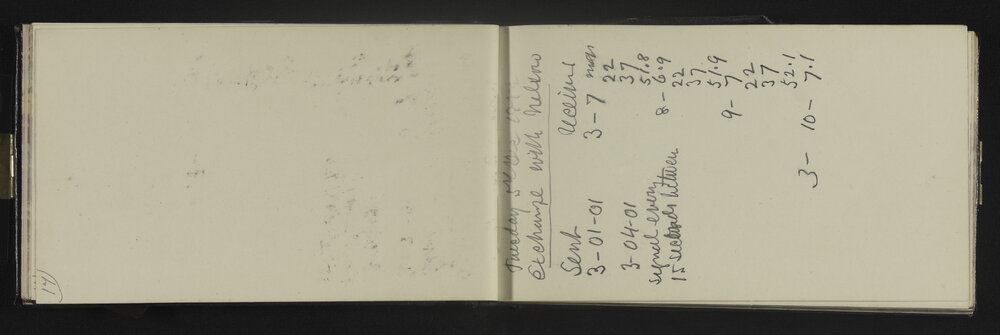 17
Tuesday
Exchange with Nelson
Sent Receive
3-01-01 3-7
22
37
3-04-01 51.8
signal every 8-6.9
15 seconds between 22
37
51.9
9-7
22
37
52.1
3- 10-7.1